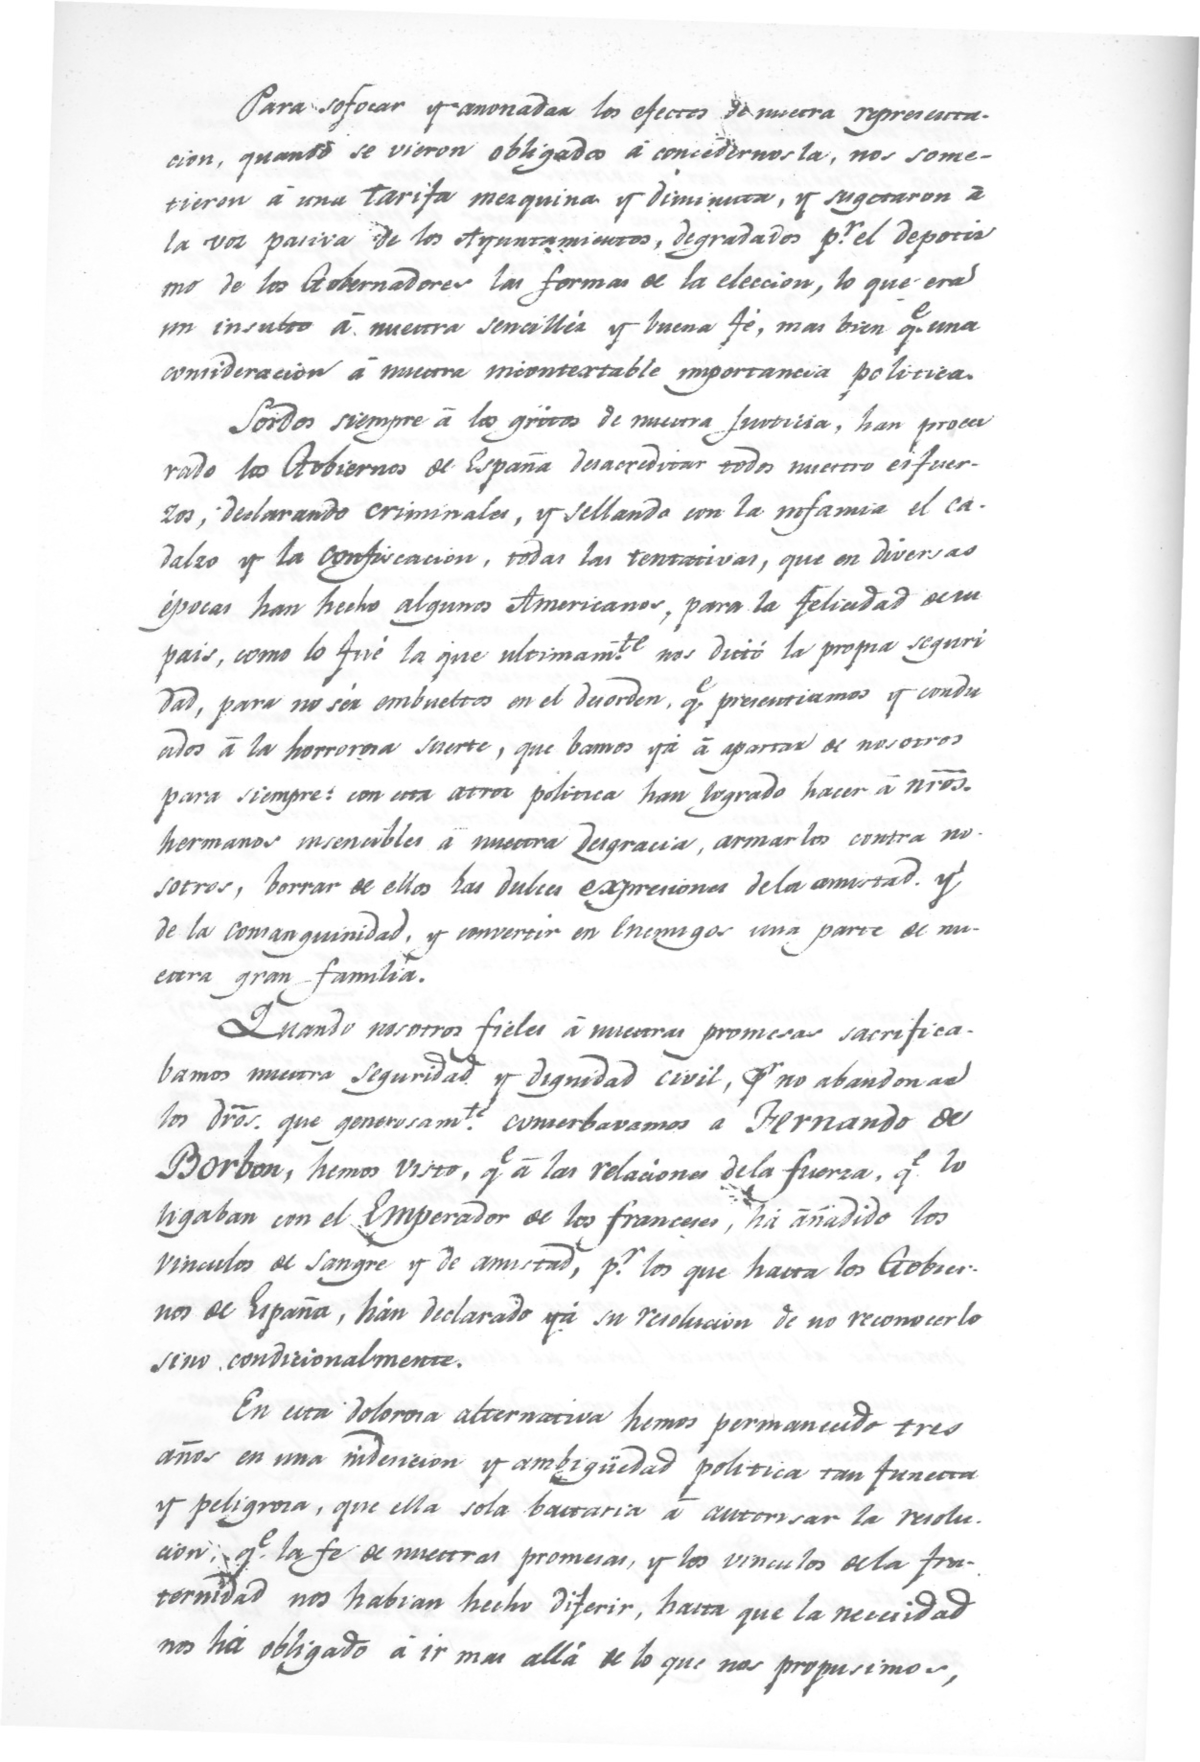 Para sofocar y anonadar los efectos de nuestra representa-
cion, quando se vieron obligados á concedernosla, nos some-
tieron á una tarifa mezquina y diminuta, y sugetaron á
la voz pasiva de los Ayuntamientos, degradados p.r el depotis
mo de los Gobernadores las formas de la eleccion, lo que era
un insulto á nuestra sencilléz y buena fé, mas bien q.e una
consideracion á nuestra incontextable importancia politica.
Sordos siempre á los gritos de nuestra Justicia, han procu
rado los Gobiernos de España desacreditar todos nuestro esfuer-
zos, declarando criminales, y sellando con la infamia el ca-
dalzo y la confiscacion, todas las tentativas, que en diversas
épocas han hecho algunos Americanos, para la felicidad de su
pais, como lo fué la que ultimam.te nos dictó la propia seguri
dad, para no sér embueltos en el desorden, q.e presentiamos y condu
cidos á la horrorosa suerte, que bamos yá á apartar de nosotros
para siempre: con esta atroz politica han logrado hacer á nrōs.
hermanos insencibles á nuestra desgracia, armarlos contra no-
sotros, borrar de ellos las dulces expresiones de la amistad y
de la consanguinidad, y convertir en Enemigos una parte de nu-
estra gran familia.
Quando nosotros fieles á nuestras promesas sacrifica-
bamos nuestra seguridad y dignidad civil, p.r no abandonar
los drōs. que generosam.te conserbavamos a Fernando de
Borbon, hemos visto, q.e á las relaciones de la fuerza, q.e lo
ligaban con el Emperador de los franceses, há áñadido los
vinculos de sangre y de amistad, p.r los que hasta los Gobier-
nos de España, hán declarado yá su resolucion de no reconocerlo
sino condicionalmente.
En esta dolorosa alternativa hemos permanecido tres
años en una indesicion y ambigüedad politica tan funesta
y peligrosa, que ella sola bastaria á autorisar la resolu-
cion, q.e la fe de nuestras promesas, y los vinculos de la fra-
ternidad nos habian hecho diferir, hasta que la necesidad
nos há obligado á ir mas allá de lo que nos propusimos,